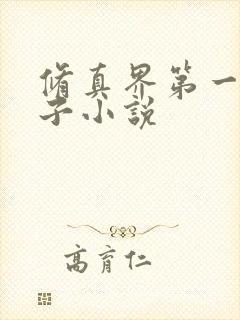 脩真界第一
子小說
高育仁